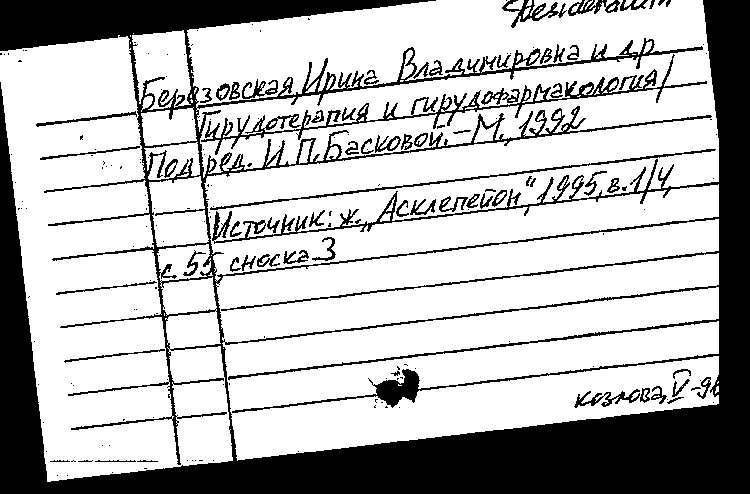 Desideratum
Березовская, Ирина Владимировна и др.
Гирудотерапия и гирудофармакология /
Под ред. И.П.Басковой. – М., 1992
Источник: ж. „Асклепейон", 1995, в. 1/4,
с. 55, сноска 3
Козлова, V-96